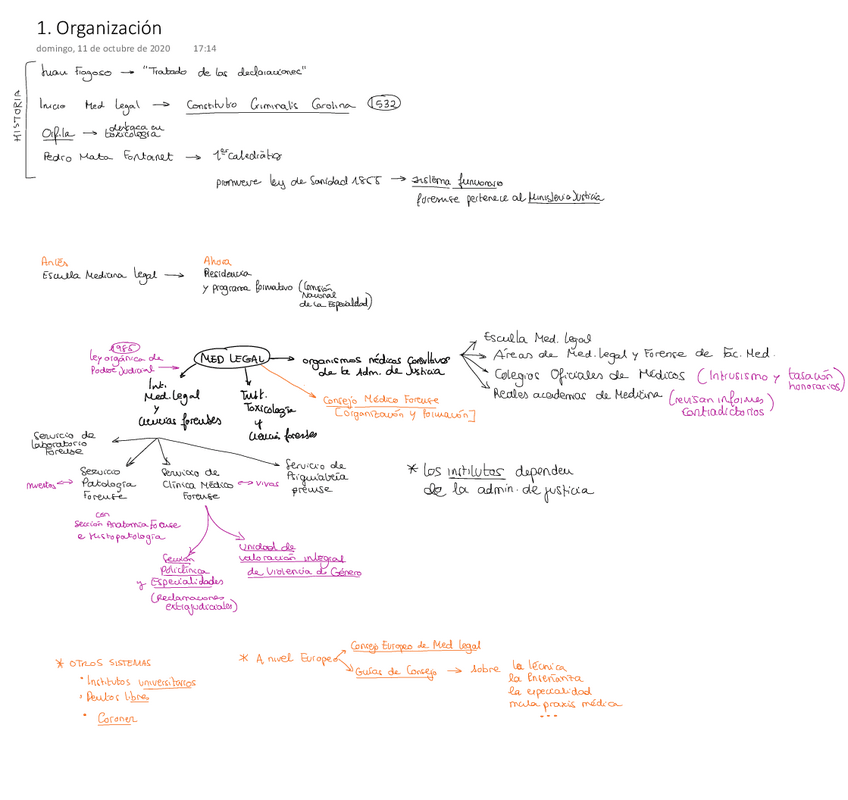 1. Organización
domingo, 11 de octubre de 2020 17:14
HISTORIA
Juan Fragoso → "Tratado de las declaraciones"
Inicio Med Legal → Constitutio Criminalis Carolina 1532
Orfila → destaca en toxicología
Pedro Mata Fontanet → 1er catedrático
promueve ley de Sanidad 1855 → sistema funcionario
forense pertenece al Ministerio Justicia
Antes
Escuela Medicina Legal →
Ahora
Residencia
y programa formativo (Comisión
Nacional
de la Especialidad)
1985
Ley orgánica de
Poder Judicial →
MED LEGAL → organismos médicos consultivos
de la Adm. de Justicia
Escuela Med. Legal
Áreas de Med. Legal y Forense de Fac. Med.
Colegios Oficiales de Médicos (Intrusismo y tasación
honorarios)
Reales academias de Medicina (revisan informes
contradictorios)
Int.
Med. Legal
y
ciencias forenses
Inst.
Toxicología
y
ciencias forenses
Consejo Médico Forense
[Organización y formación]
Servicio de
Laboratorio
Forense
muertos ↔ Servicio
Patología
Forense
con
Sección Anatomía Forense
e Histopatología
Servicio de
Clínica Médico
Forense ↔ vivas
Servicio de
Psiquiatría
* Los institutos dependen
de la admin. de justicia
Sección
Policlínica
y Especialidades
(Reclamaciones
extrajudiciales)
Unidad de
valoración integral
de Violencia de Género
* OTROS SISTEMAS
• Institutos universitarios
• Peritos libre
• Coroner
* A nivel Europeo
Consejo Europeo de Med Legal
Guías de Consejo → sobre la técnica
la Enseñanza
la especialidad
mala praxis médica
...